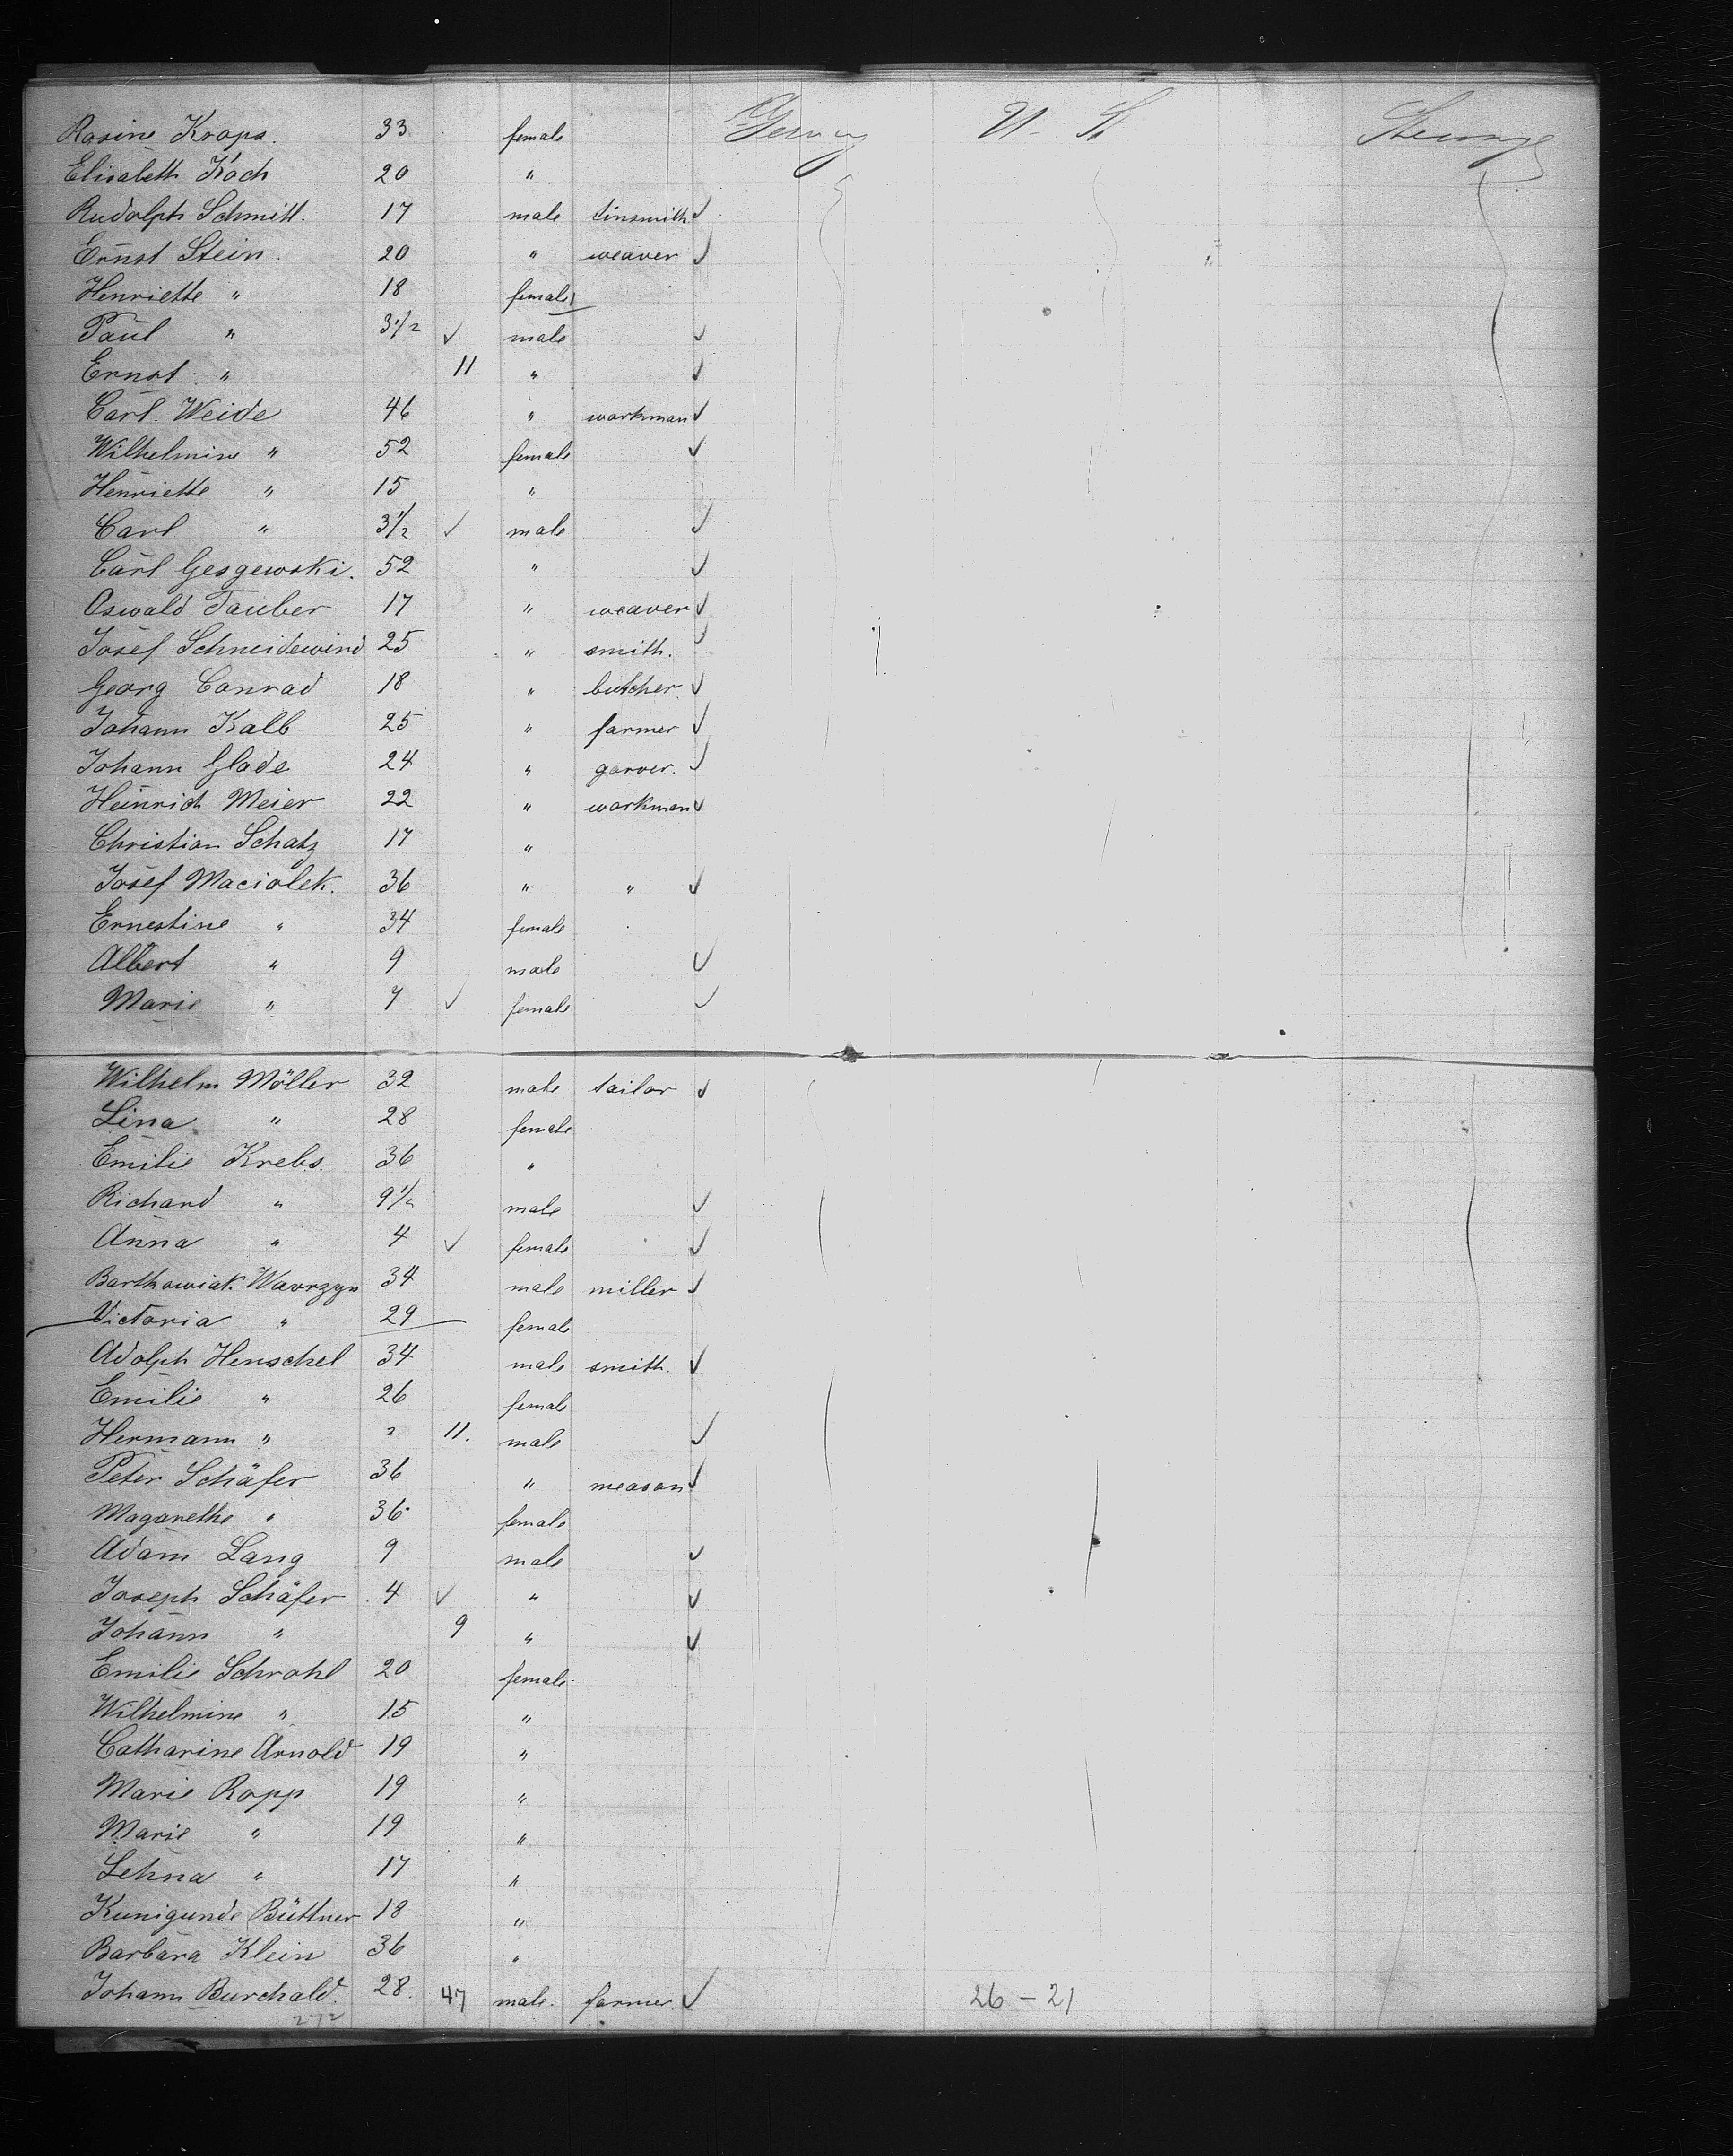 Rosine Kraps. 33 female Germany U. St Steerage
Elisabeth Koch 20 "
Rudolph Schmitt. 17 male tinsmith ✓
Ernst Stein. 20 " weaver ✓
Henriette " 18 female
Paul " 3 1/2 ✓ male ✓
Ernst " 11 " ✓
Carl Weide 46 " workman ✓
Wilhelmine " 52 female ✓
Henriette " 15 "
Carl " 3 1/2 ✓ male ✓
Carl Gesgewski. 52 " ✓
Oswald Tauber 17 " weaver ✓
Josef Schneidewind 25 " smith. ✓
Georg Conrad 18 " butcher ✓
Johann Kalb 25 " farmer ✓
Johann Glade 24 " garver. ✓
Heinrich Meier 22 " workman ✓
Christian Schatz 17 "
Josef Maciolek. 36 " " ✓
Ernestine " 34 female
Albert " 9 male ✓
Marie " 7 ✓ female ✓
Wilhelm Möller 32 male tailor ✓
Lina " 28 female
Emilie Krebs. 36 "
Richard " 9 1/2 male ✓
Anna " 4 ✓ female ✓
Barthowiak Wavrzyn 34 male miller ✓
Victoria " 29 female
Adolph Henschel 34 male smith. ✓
Emilie " 26 female
Hermann " " 11. male ✓
Peter Schäfer 36 " meason ✓
Magarethe " 36 female
Adam Lang 9 male ✓
Joseph Schäfer 4 ✓ " ✓
Johann " 9 " ✓
Emilie Schrohl 20 female
Wilhelmine " 15 "
Catharine Arnold 19 "
Marie Ropp 19 "
Marie " 19 "
Lehna " 17 "
Kunigunde Büttner 18 "
Barbara Klein 36 "
Johann Burchald. 28. 47 male. farmer. ✓ 26 - 21
272